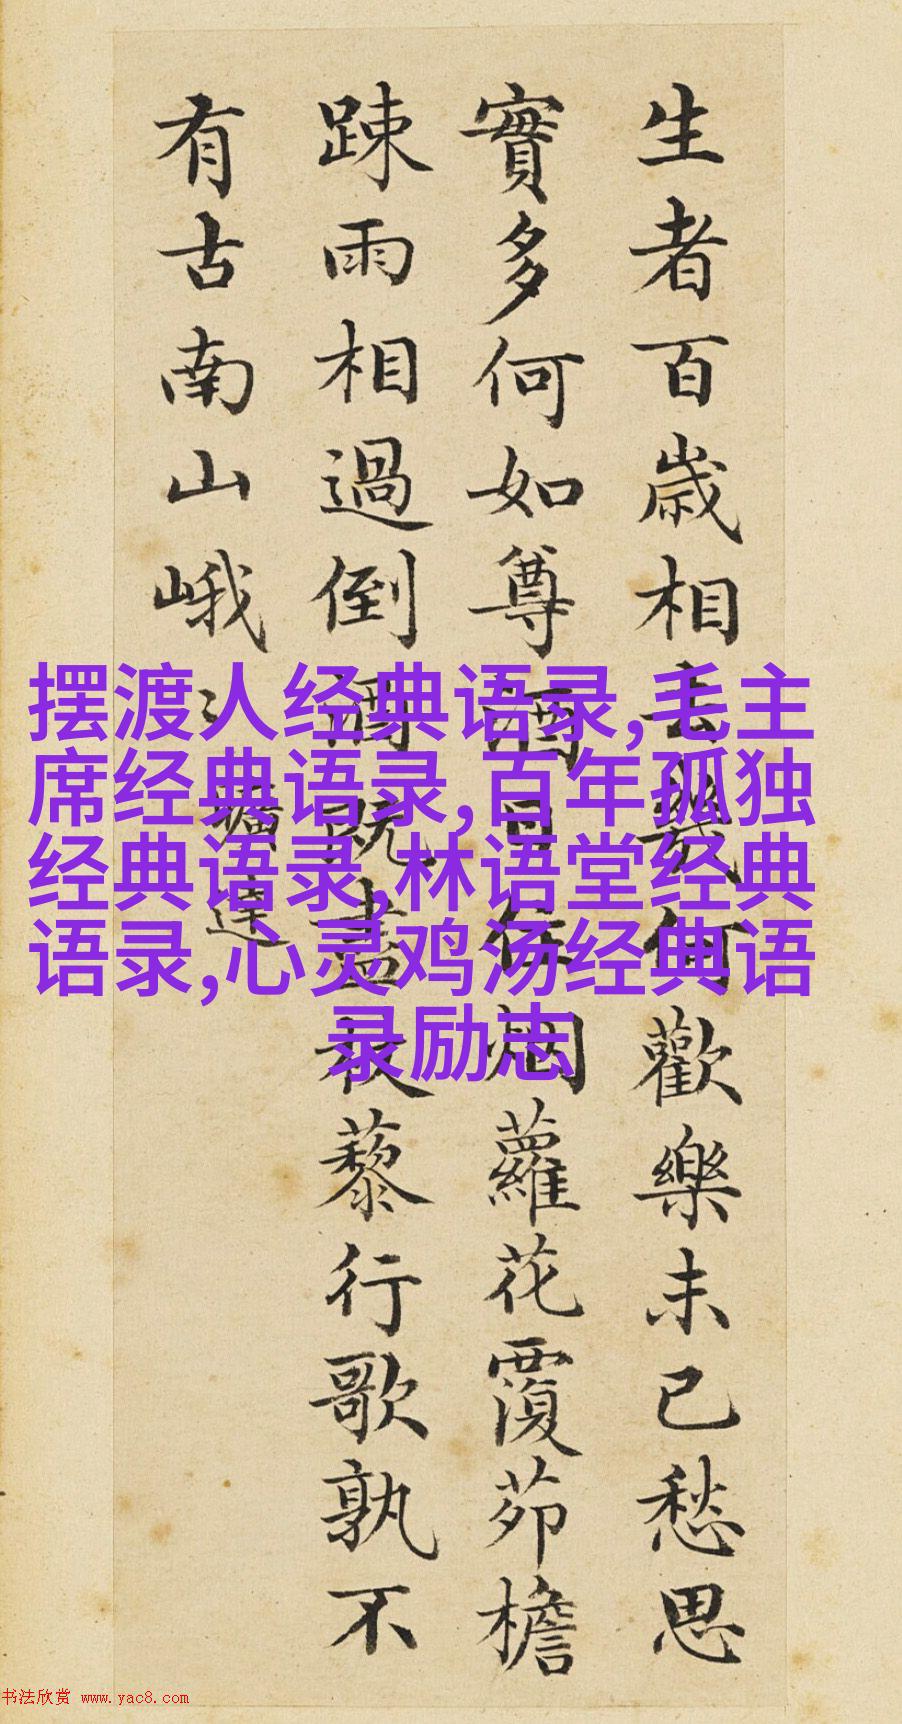 生者百歲相去幾何歡樂未已愁思
實多何如尊酒日往烟蘿花覆茆檐
踈雨相過倒酒既盡杖藜行歌孰不
有古南山峨〻曠達
摆渡人经典语录,毛主
席经典语录,百年孤独
经典语录,林语堂经典
语录,心灵鸡汤经典语
录励志
书法欣赏 www.yac8.com